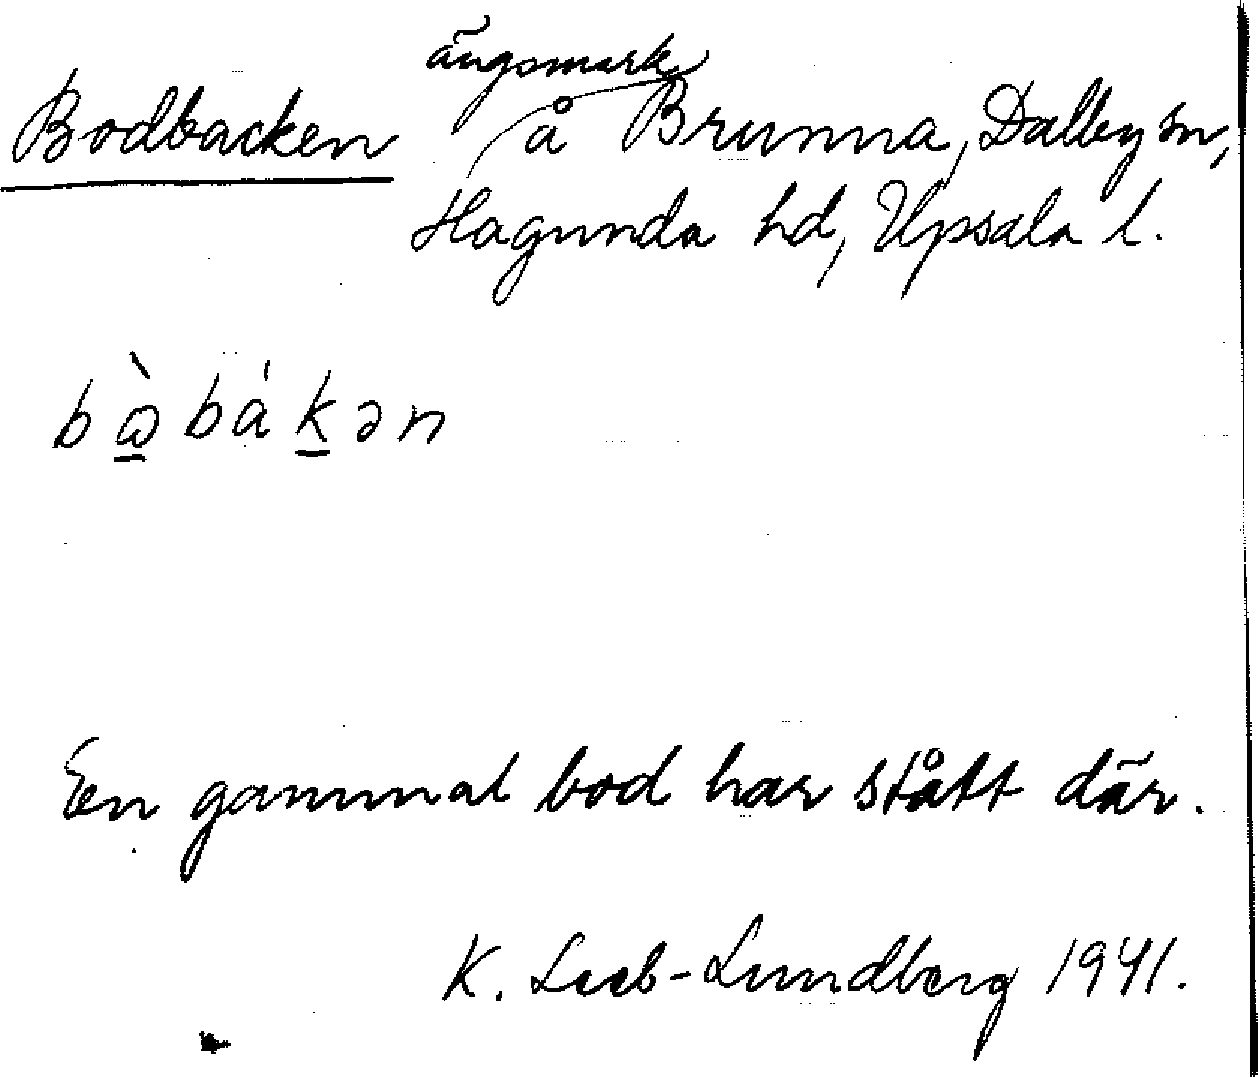 Bodbacken ängsmark å Brunna, Dalby sn,
Hagunda hd, Upsala l.
bὼ̲bákə̲n
En gammal bod har stått där.
K. Leeb-Lundberg 1941.